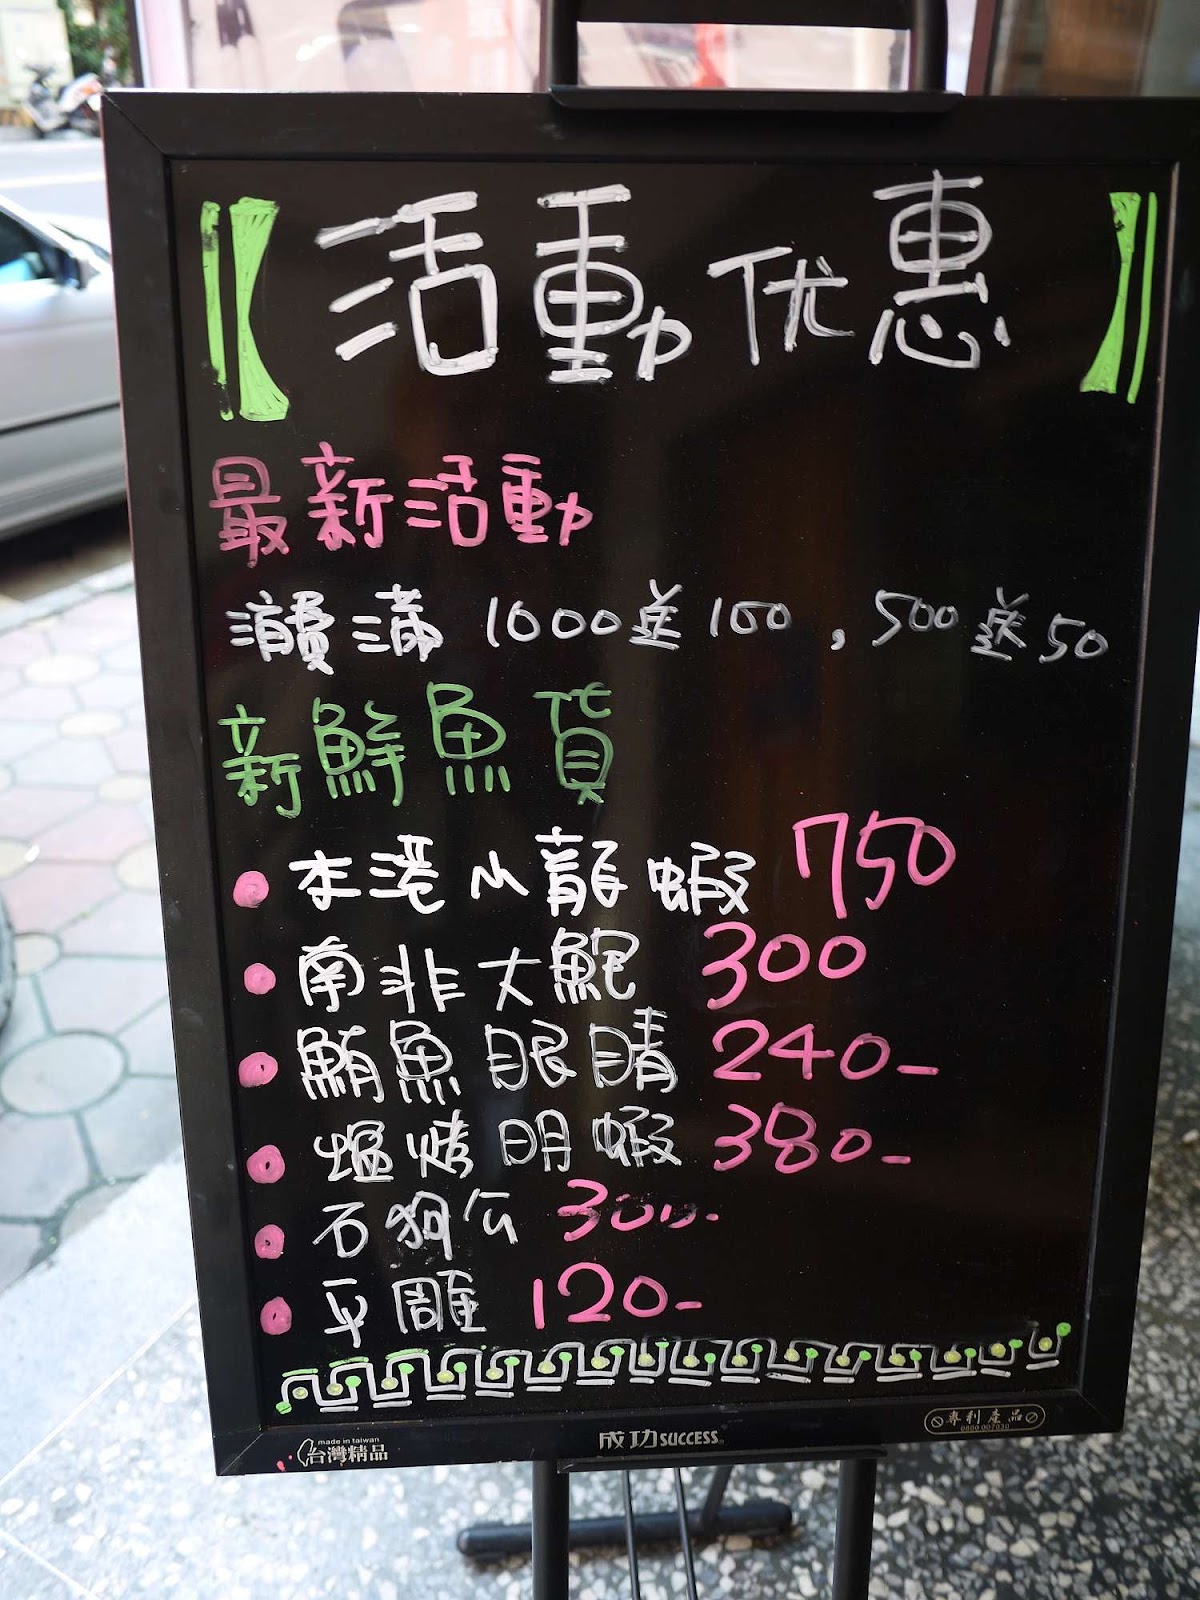 【活動优惠】
最新活動
消費滿 1000送100,500送50
新鮮魚貨
本港小龍蝦 750
南非大鮑 300
鮪魚眼睛 240-
爐烤明蝦 380-
石狗公 300-
平雕 120-
made in taiwan
台灣精品
成功SUCCESS
專利產品
0800 007030